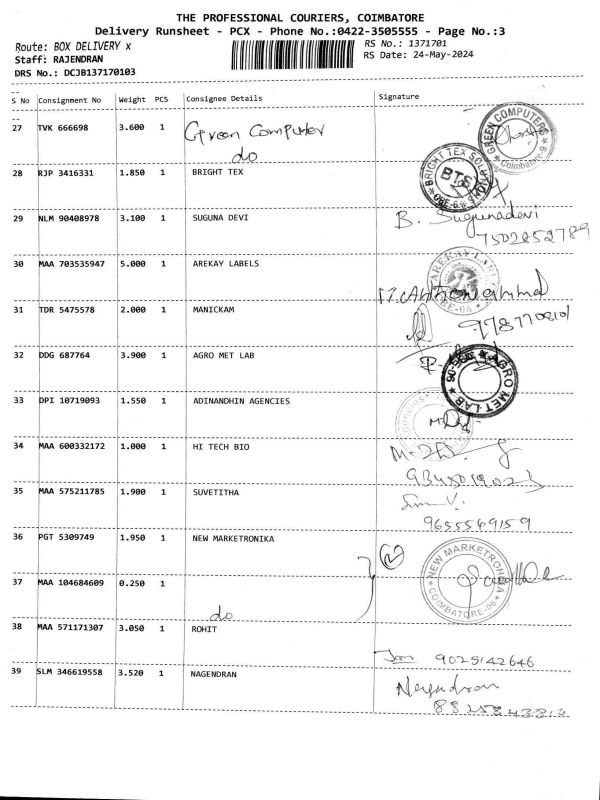 THE PROFESSIONAL COURIERS, COIMBATORE
Delivery Runsheet - PCX - Phone No.:0422-3505555 - Page No.:3
Route: BOX DELIVERY x
RS No.: 1371701
Staff: RAJENDRAN
RS Date: 24-May-2024
DRS No.: DCJB137170103
S No Consignment No Weight PCS Consignee Details Signature
27 TVK 666698 3.600 1 Green Computer
GREEN COMPUTERS Coimbatore-6
do
BRIGHT TEX SOLUTIONS BTS CBE-6
28 RJP 3416331 1.850 1 BRIGHT TEX
29 NLM 90408978 3.100 1 SUGUNA DEVI B. Sugunadevi
7502852789
30 MAA 703535947 5.000 1 AREKAY LABELS
31 TDR 5475578 2.000 1 MANICKAM
32 DDG 687764 3.900 1 AGRO MET LAB
AGRO MET LAB
33 DPI 10719093 1.550 1 ADINANDHIN AGENCIES
34 MAA 600332172 1.000 1 HI TECH BIO
35 MAA 575211785 1.900 1 SUVETITHA
9655569159
36 PGT 5309749 1.950 1 NEW MARKETRONIKA
NEW MARKETRONIKA COIMBATORE-06
37 MAA 104684609 0.250 1
do
38 MAA 571171307 3.050 1 ROHIT
9025142646
39 SLM 346619558 3.520 1 NAGENDRAN Nagendran